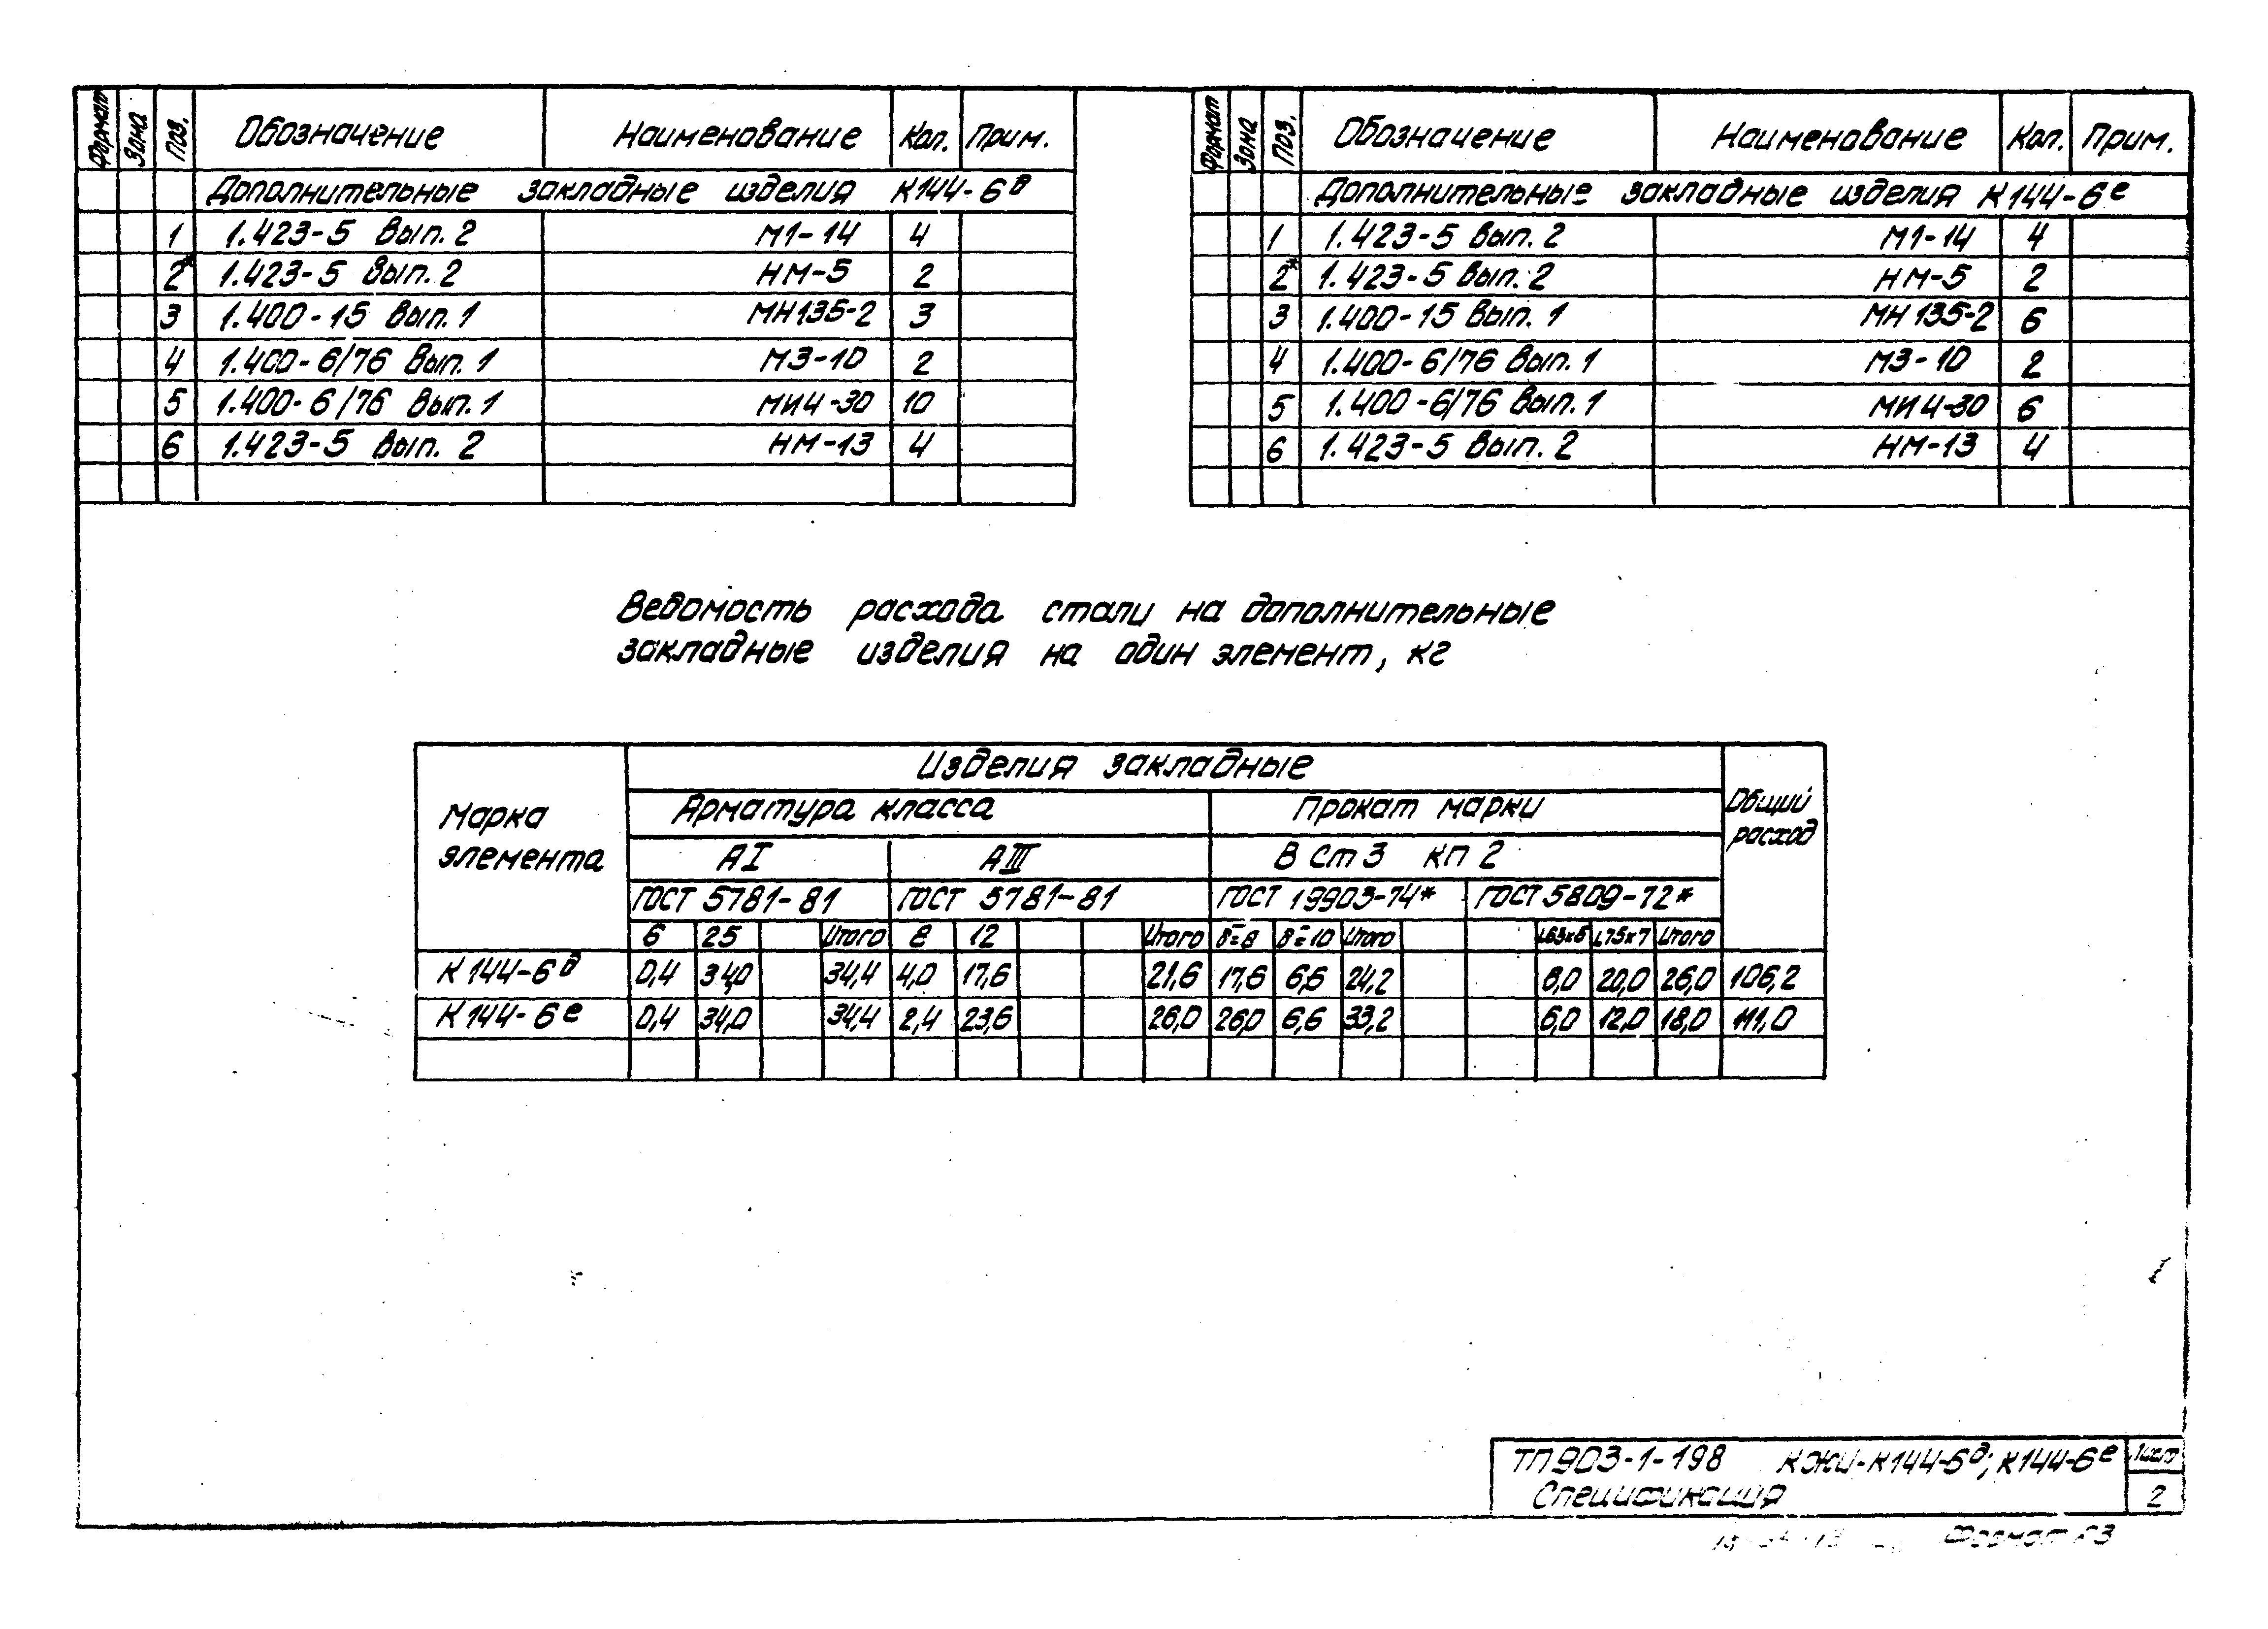 Формат Зона Поз. Обозначение Наименование Кол. Прим.
Дополнительные закладные изделия К144-6д
1 1.423-5 Вып. 2 М1-14 4
2* 1.423-5 Вып. 2 НМ-5 2
3 1.400-15 Вып. 1 МН135-2 3
4 1.400-6/76 Вып. 1 М3-10 2
5 1.400-6/76 Вып. 1 МИ4-30 10
6 1.423-5 Вып. 2 НМ-13 4
Формат Зона Поз. Обозначение Наименование Кол. Прим.
Дополнительные закладные изделия К144-6е
1 1.423-5 Вып. 2 М1-14 4
2* 1.423-5 Вып. 2 НМ-5 2
3 1.400-15 Вып. 1 МН135-2 6
4 1.400-6/76 Вып. 1 М3-10 2
5 1.400-6/76 Вып. 1 МИ4-30 6
6 1.423-5 Вып. 2 НМ-13 4
Ведомость расхода стали на дополнительные
закладные изделия на один элемент, кг
Марка элемента
Изделия закладные
Общий расход
Арматура класса Прокат марки
АI АIII В Ст 3 кп 2
ГОСТ 5781-81 ГОСТ 5781-81 ГОСТ 19903-74* ГОСТ 5809-72*
6 25 Итого 8 12 Итого δ=8 δ=10 Итого L63х5 L75х7 Итого
К144-6д 0,4 34,0 34,4 4,0 17,6 21,6 17,6 6,6 24,2 6,0 20,0 26,0 106,2
К144-6е 0,4 34,0 34,4 2,4 23,6 26,0 26,0 6,6 33,2 6,0 12,0 18,0 111,0
ТП 903-1-198 КЖИ-К144-6д; К144-6е Лист
Спецификация 2
Формат А3